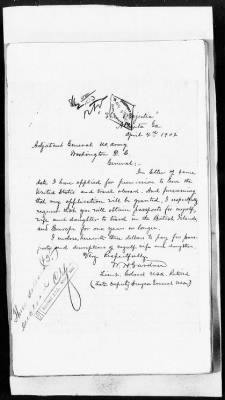 "The Magnolia"
Atlanta Ga
April 4th 1902
Adjutant General US Army
Washington D. C.
General:-
In letter of same
date I have applied for permission to leave the
United States and travel abroad. And presuming
that my application will be granted, I respectfully
request that you will obtain passports for myself,
wife and daughter to travel in the British Islands,
and Europe for one year or longer.
I inclose herewith three dollars to pay for pass-
ports, and descriptions of myself, wife and daughter.
Very Respectfully
W. H. Gardner
Lieut. Colonel USA. Retired
(Late Deputy Surgeon General USA)